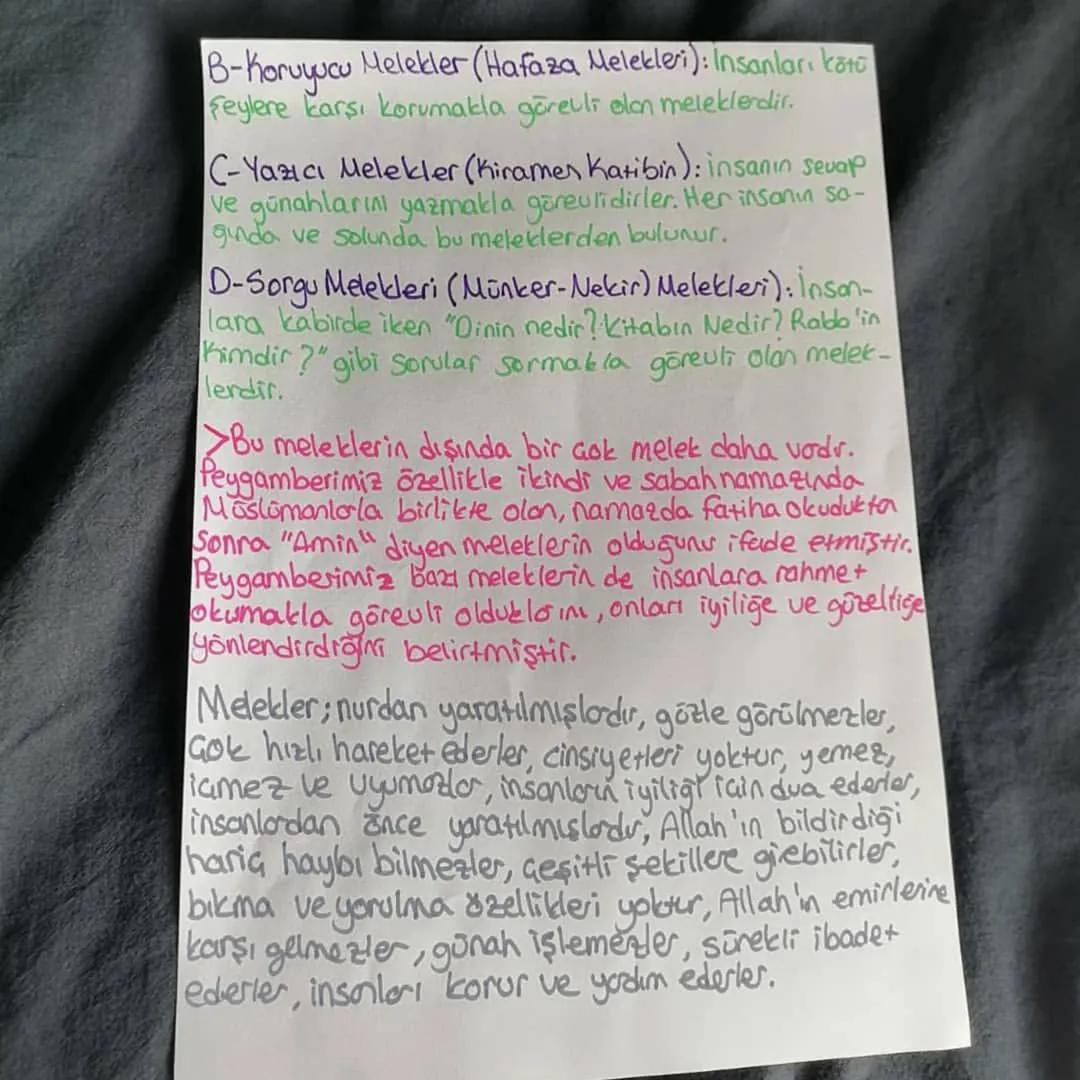 B-Koruyucu Melekler (Hafaza Melekleri): İnsanları kötü
şeylere karşı korumakla görevli olan meleklerdir.
C-Yazıcı Melekler (Kiramen Katibin): insanın sevap
ve günahlarını yazmakla görevlidirler. Her insanın sa-
ğında ve solunda bu meleklerden bulunur.
D-Sorgu Melekleri (Münker-Nekir) Melekleri): İnsan-
lara kabirde iken "Dinin nedir? Kitabın Nedir? Rabb'in
Kimdir?" gibi sorular sormakla görevli olan melek-
lerdir.
>Bu meleklerin dışında bir çok melek daha vardır.
Peygamberimiz özellikle ikindi ve sabah namazında
Müslümanlarla birlikte olan, namazda fatiha okuduktan
sonra "Amin" diyen meleklerin olduğunu ifade etmiştir.
Peygamberimiz bazı meleklerin de insanlara rahmet
okumakla görevli olduklarını, onları iyiliğe ve güzelliğe
yönlendirdiğini belirtmiştir.
Melekler; nurdan yaratılmışlardır, gözle görülmezler,
çok hızlı hareket ederler, cinsiyetleri yoktur, yemez,
içmez ve uyumazlar, insanların iyiliği için dua ederler,
insanlardan önce yaratılmışlardır, Allah'ın bildirdiği
hariç haybı bilmezler, çeşitli şekillere girebilirler,
bıkma ve yorulma özellikleri yoktur, Allah'ın emirlerine
karşı gelmezler, günah işlemezler, sürekli ibadet
ederler, insanları korur ve yardım ederler.